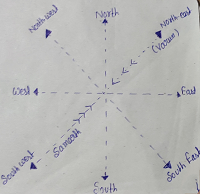 North
North west
North-east
(Varun)
West
East
South west
Samarth
South East
South